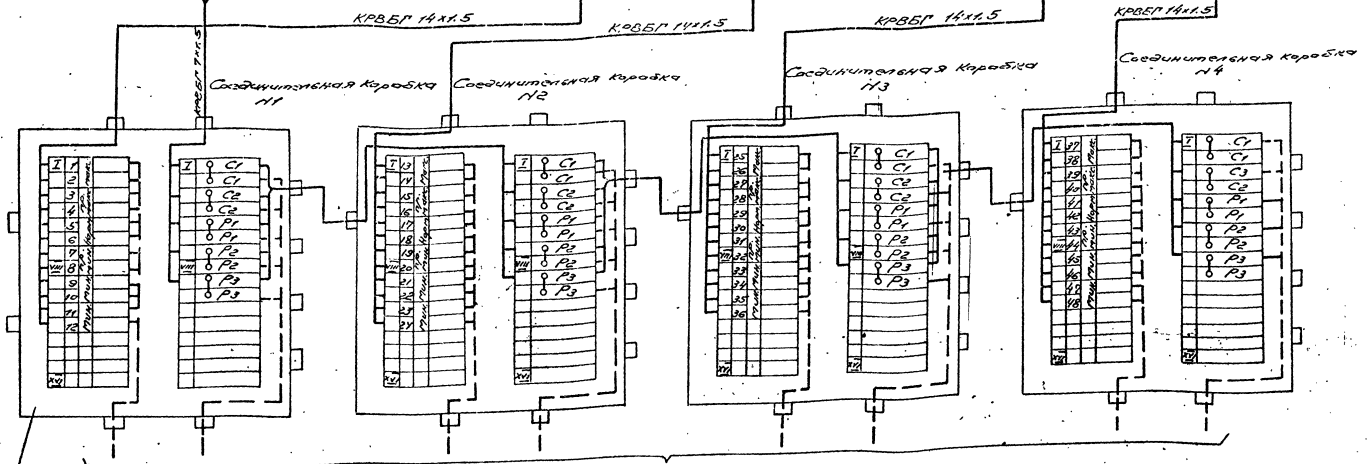 КРВБГ 14×1.5
КРВБГ 14×1.5
КРВБГ 14×1.5
КРВБГ 14×1.5
КРВБГ 7×1.5
Соединительная коробка
N1
Соединительная коробка
N2
Соединительная коробка
N3
Соединительная коробка
N4
I 1
2
3
4
5
6
7
VIII 8
9
10
11
12
XVI
I C1
C1
C2
C2
P1
P1
P2
VIII P2
P3
P3
I 13
14
15
16
17
18
19
VIII 20
21
22
23
24
XVI
I C1
C1
C2
C2
P1
P1
P2
VIII P2
P3
P3
XVI
I 25
26
27
28
29
30
31
VIII 32
33
34
35
36
XVI
I C1
C1
C2
C2
P1
P1
P2
VIII P2
P3
P3
XVI
I 37
38
39
40
41
42
43
VIII 44
45
46
47
48
XVI
I C1
C1
C3
C2
P1
P1
P2
P2
P3
P3
XVI